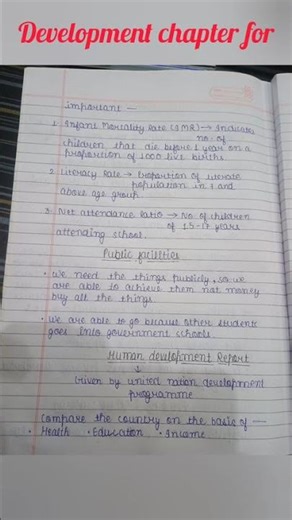 Development chapter for
important —
1. Infant Mortality Rate (IMR) → Indicates
no. of
children that die before 1 year on a
proportion of 1000 live births
2. Literacy Rate → Proportion of literate
population in 7 and
above age group
3. Net attendance Ratio → No of children
of 15-17 years
attending school.
Public facilities
• We need the things publicly, so we
are able to achieve them not money
buy all the things
• We are able to go because other students
goes into government schools
Human development Report
↓
Given by united nation development
programme
Compare the country on the basis of —
• Health • Education • Income